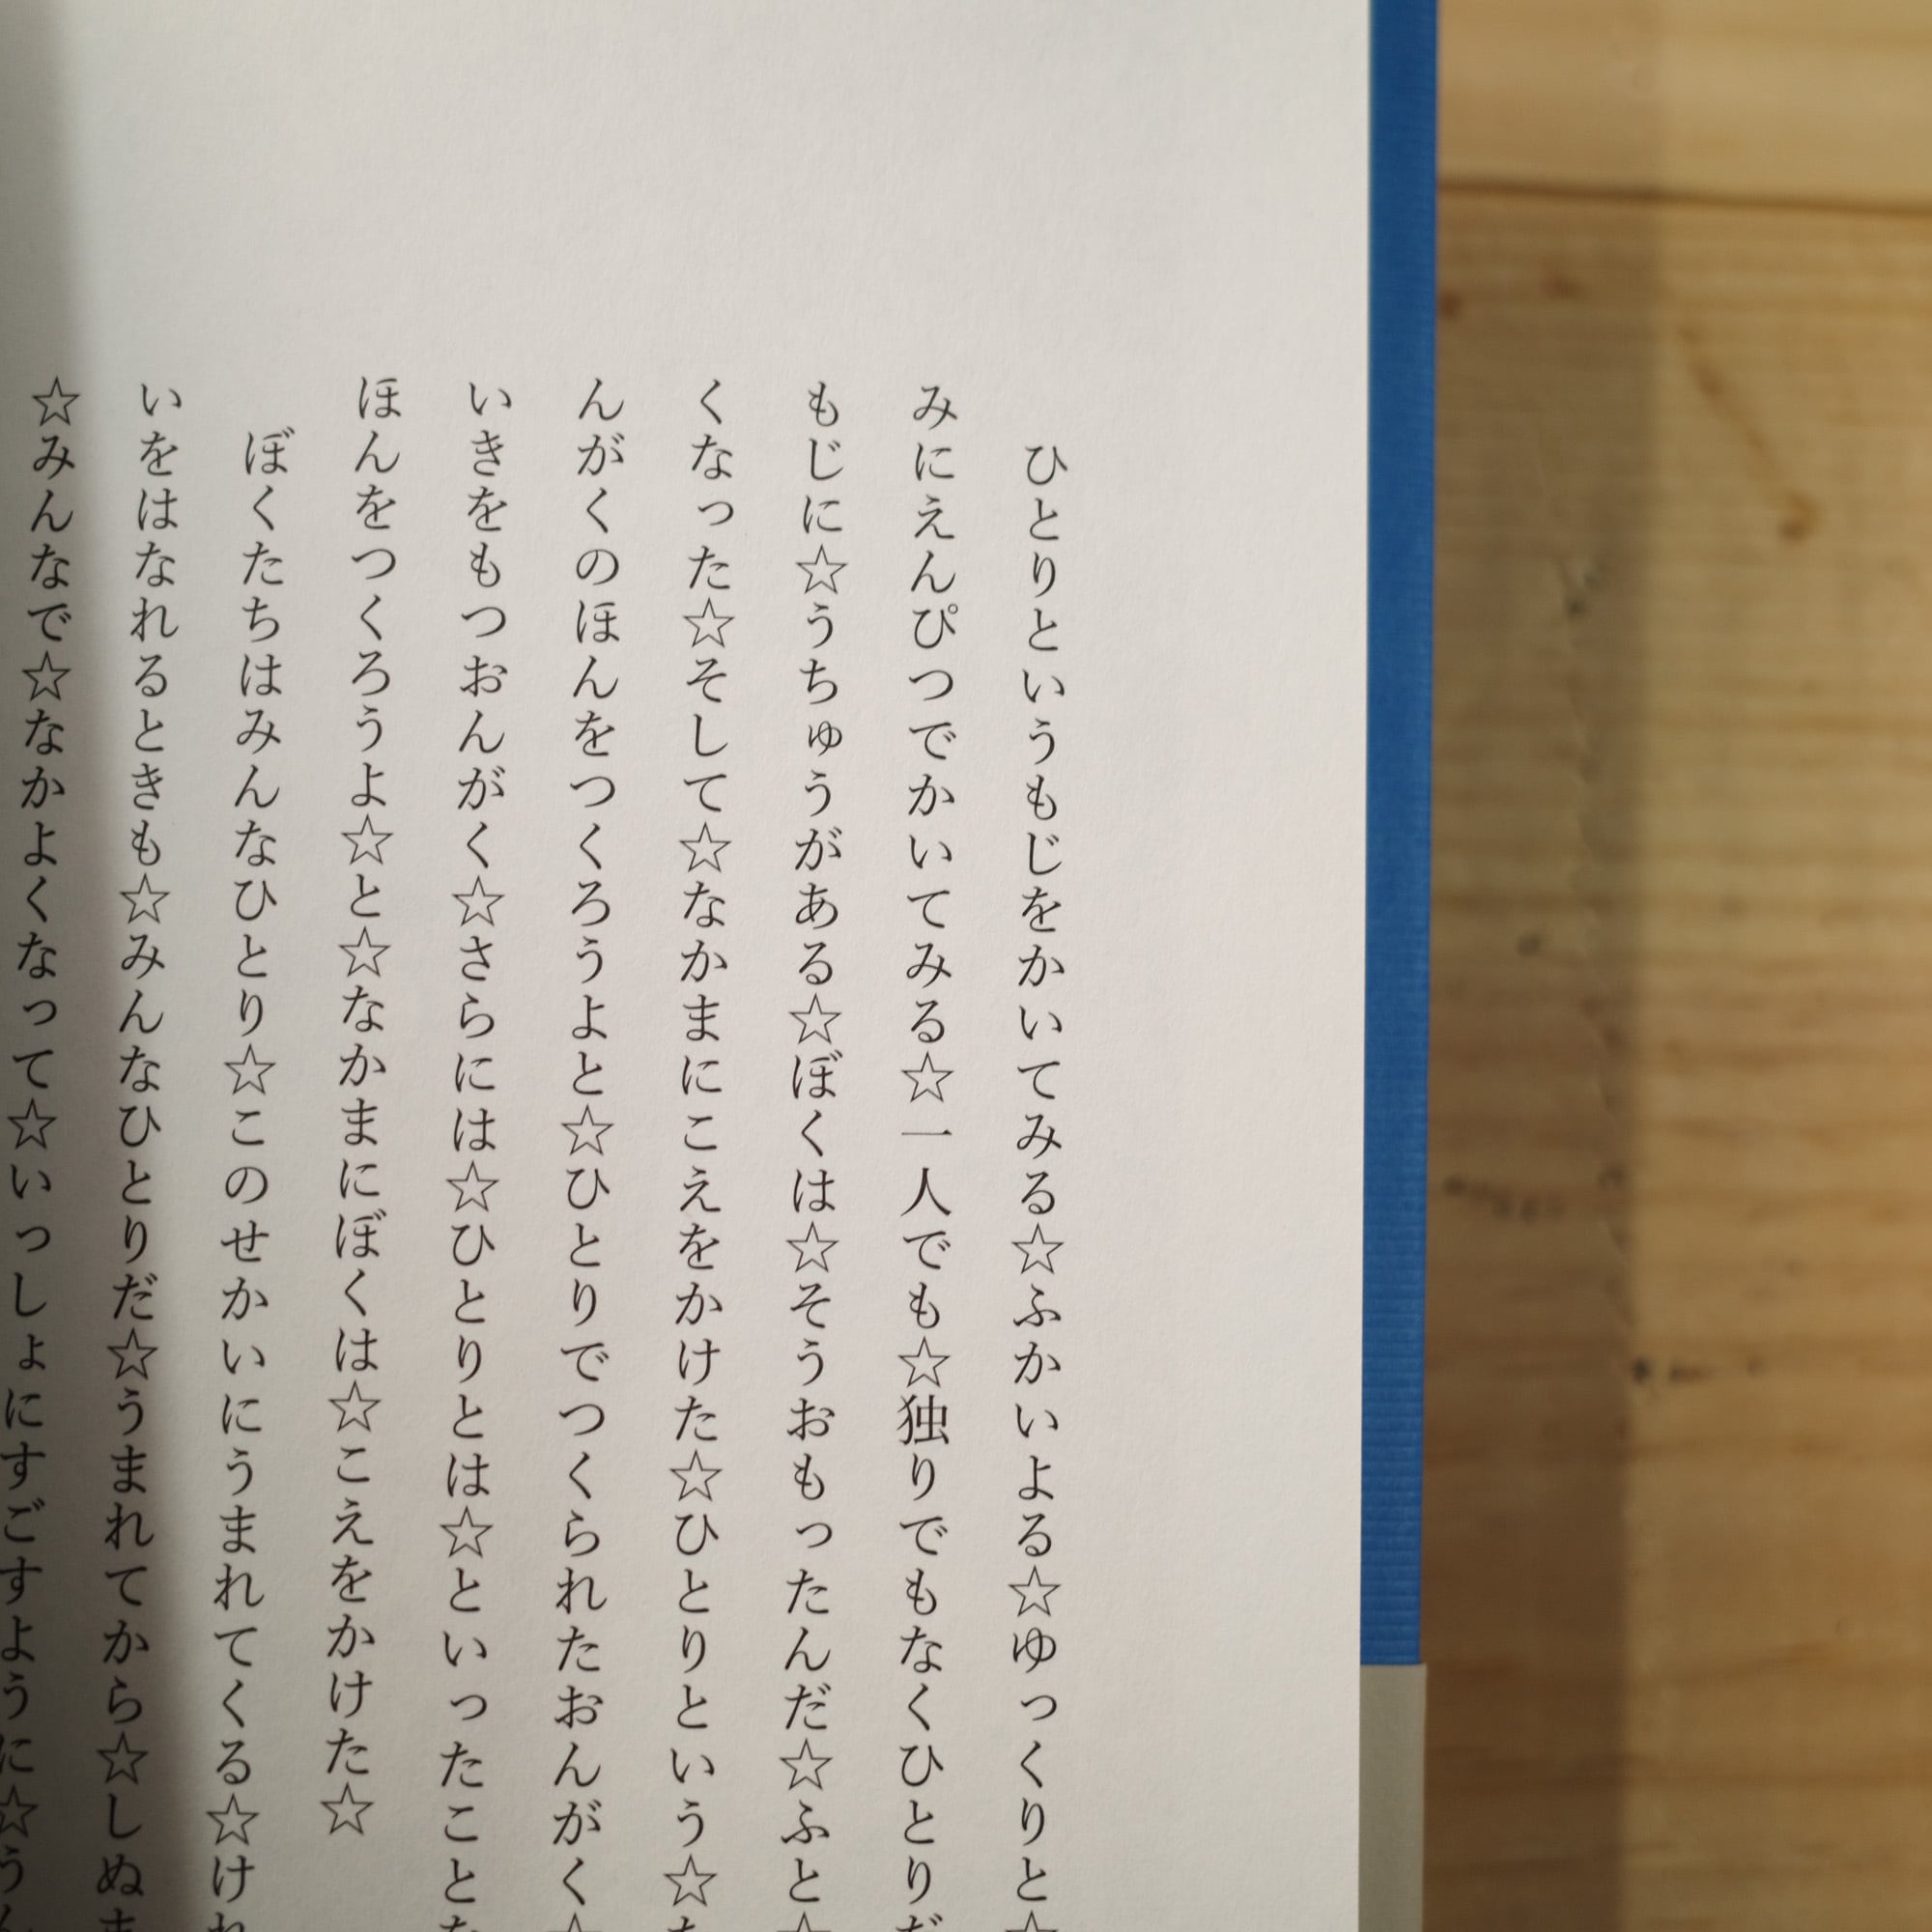 ひとりというもじをかいてみる☆ふかいよる☆ゆっくりと☆
みにえんぴつでかいてみる☆一人でも☆独りでもなくひとりだ
もじに☆うちゅうがある☆ぼくは☆そうおもったんだ☆ふと☆
くなった☆そして☆なかまにこえをかけた☆ひとりという☆
んがくのほんをつくろうよと☆ひとりでつくられたおんがく☆
いきをもつおんがく☆さらには☆ひとりとは☆といったこと
ほんをつくろうよ☆と☆なかまにぼくは☆こえをかけた☆
ぼくたちはみんなひとり☆このせかいにうまれてくる☆けれ
いをはなれるときも☆みんなひとりだ☆うまれてから☆しぬま
☆みんなで☆なかよくなって☆いっしょにすごすように☆う